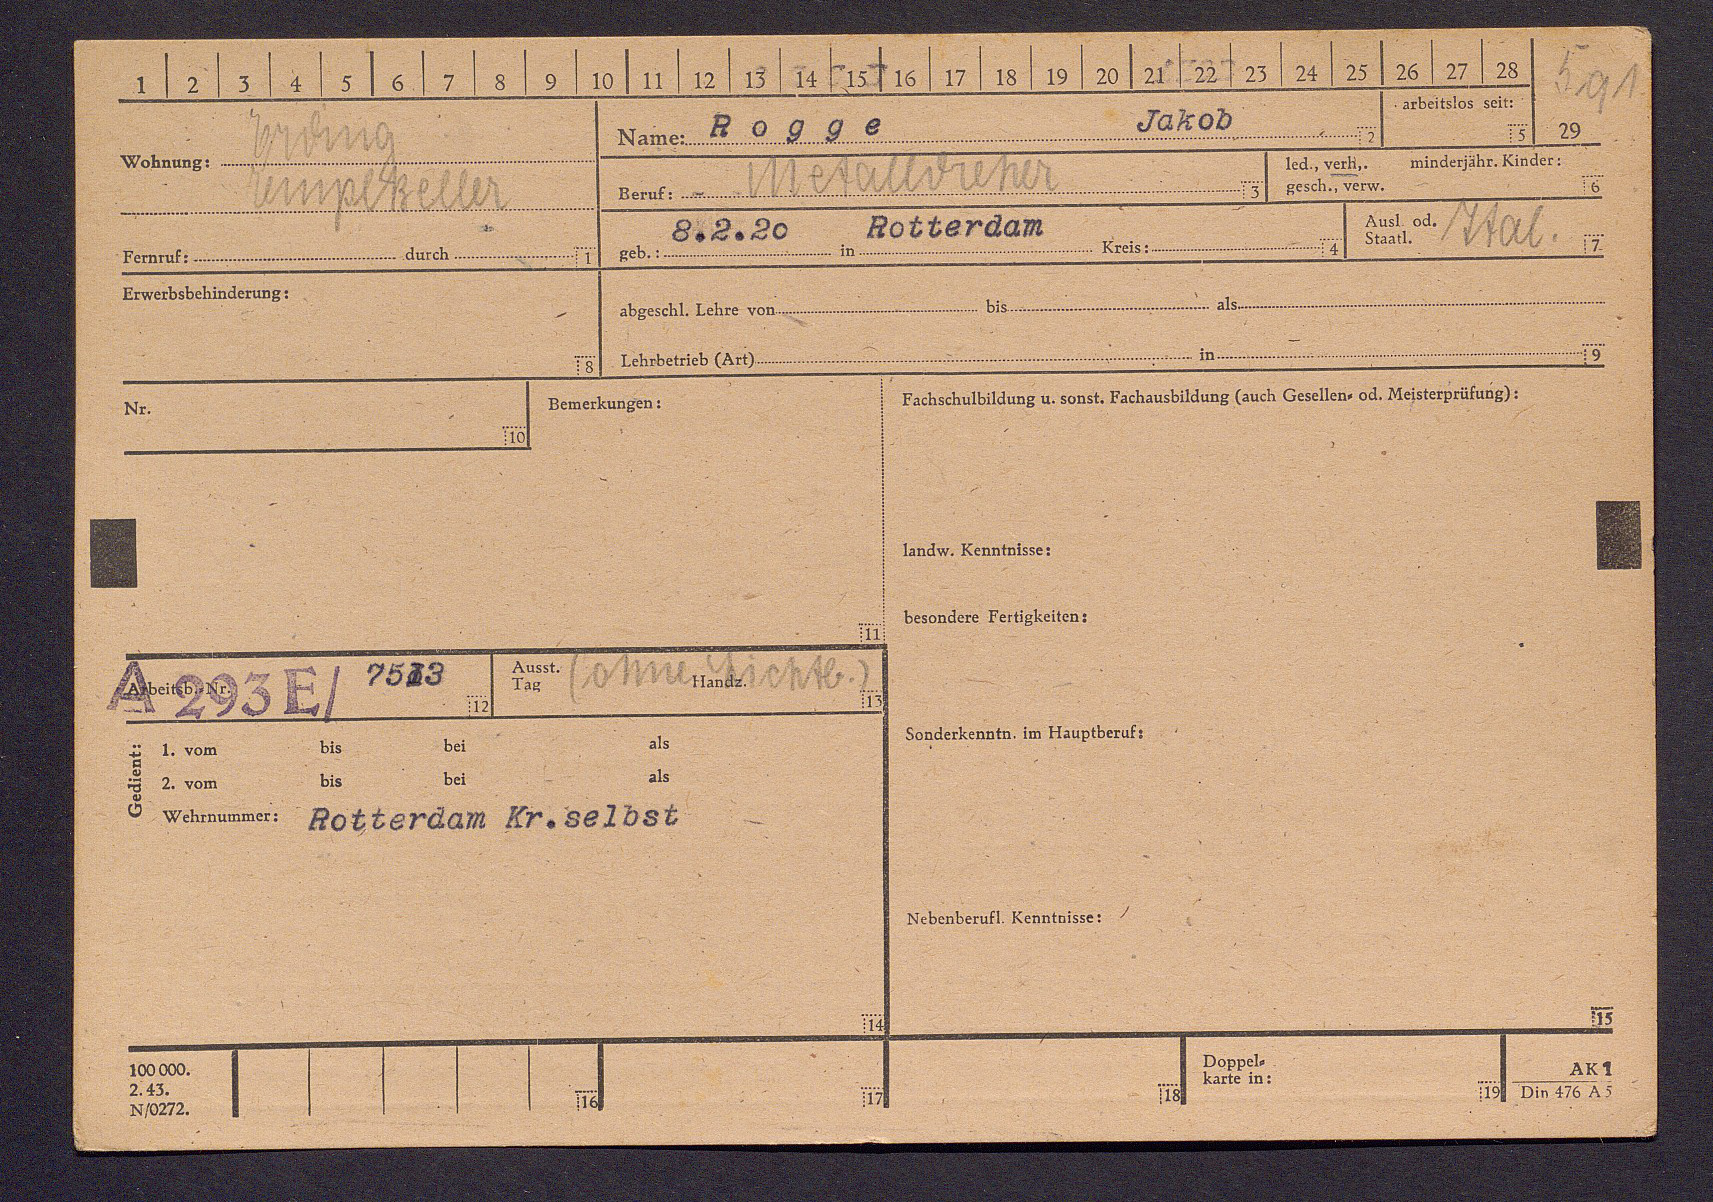 1 2 3 4 5 6 7 8 9 10 11 12 13 14 15 16 17 18 19 20 21 22 23 24 25 26 27 28
591
29
Wohnung: Erding
Templkeller
Fernruf: durch 1
Name: Rogge Jakob 2
arbeitslos seit: 5
Beruf: - Metalldreher 3
led., verh., minderjähr. Kinder:
gesch., verw. 6
geb.: 8.2.20 in Rotterdam Kreis: 4
Ausl. od.
Staatl. Ital. 7
Erwerbsbehinderung: 8
abgeschl. Lehre von bis als
Lehrbetrieb (Art) in 9
Nr. 10
Bemerkungen: 11
Fachschulbildung u. sonst. Fachausbildung (auch Gesellen- od. Meisterprüfung):
landw. Kenntnisse:
besondere Fertigkeiten:
Sonderkenntn. im Hauptberuf:
Nebenberufl. Kenntnisse:
15
Arbeitsb.-Nr. A 293 E/ 12
Ausst.
Tag Handz. (ohne Lichtb.) 13
Gedient:
1. vom bis bei als
2. vom bis bei als
Wehrnummer: Rotterdam Kr.selbst
14
100 000.
2. 43.
N/0272.
16 17 18
Doppel-
karte in: 19
AK 1
Din 476 A 5